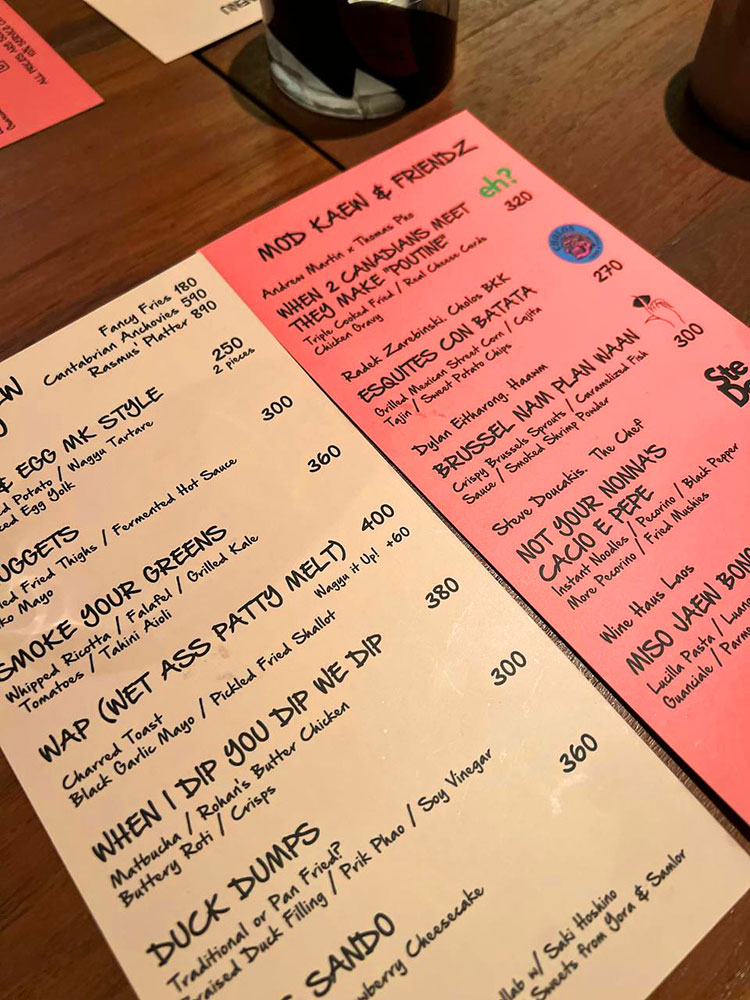 ALL PRICES ARE SU
10% SERVICE C
Fancy Fries 180
Cantabrian Anchovies 590
Rasmus' Platter 890
250
2 pieces
& EGG MK STYLE
Potato / Wagyu Tartare
Egg Yolk
300
Fried Thighs / Fermented Hot Sauce
Mayo
360
SMOKE YOUR GREENS
Whipped Ricotta / Falafel / Grilled Kale
Tomatoes / Tahini Aioli
400
WAP (WET ASS PATTY MELT)
Wagyu it Up! +60
Charred Toast
Black Garlic Mayo / Pickled Fried Shallot
380
WHEN I DIP YOU DIP WE DIP
Matbucha / Rohan's Butter Chicken
Buttery Roti / Crisps
300
DUCK DUMPS
Traditional or Pan Fried?
Braised Duck Filling / Prik Phao / Soy Vinegar
360
SANDO
Cheesecake
w/ Saki Hoshino
Sweets from Yora & Samlor
MOD KAEW & FRIENDZ
eh?
Andrew Martin x Thomas Pho
320
WHEN 2 CANADIANS MEET
THEY MAKE "POUTINE"
Triple Cooked Fried / Real Cheese Cards
Chicken Gravy
CHOLOS
Radek Zarebinski. Cholos BKK
270
ESQUITES CON BATATA
Grilled Mexican Street Corn / Cojita
Tajin / Sweet Potato Chips
Dylan Eitharong. Haawm
300
BRUSSEL NAM PLAN WAAN
Crispy Brussels Sprouts / Caramelized Fish
Sauce / Smoked Shrimp Powder
Ste
D
Steve Doucakis. The Chef
NOT YOUR NONNA'S
CACIO E PEPE
Instant Noodles / Pecorino / Black Pepper
More Pecorino / Fried Mushies
Wine Haus Laos
MISO JAEN BOM
Lucilla Pasta /
Guanciale / Parme